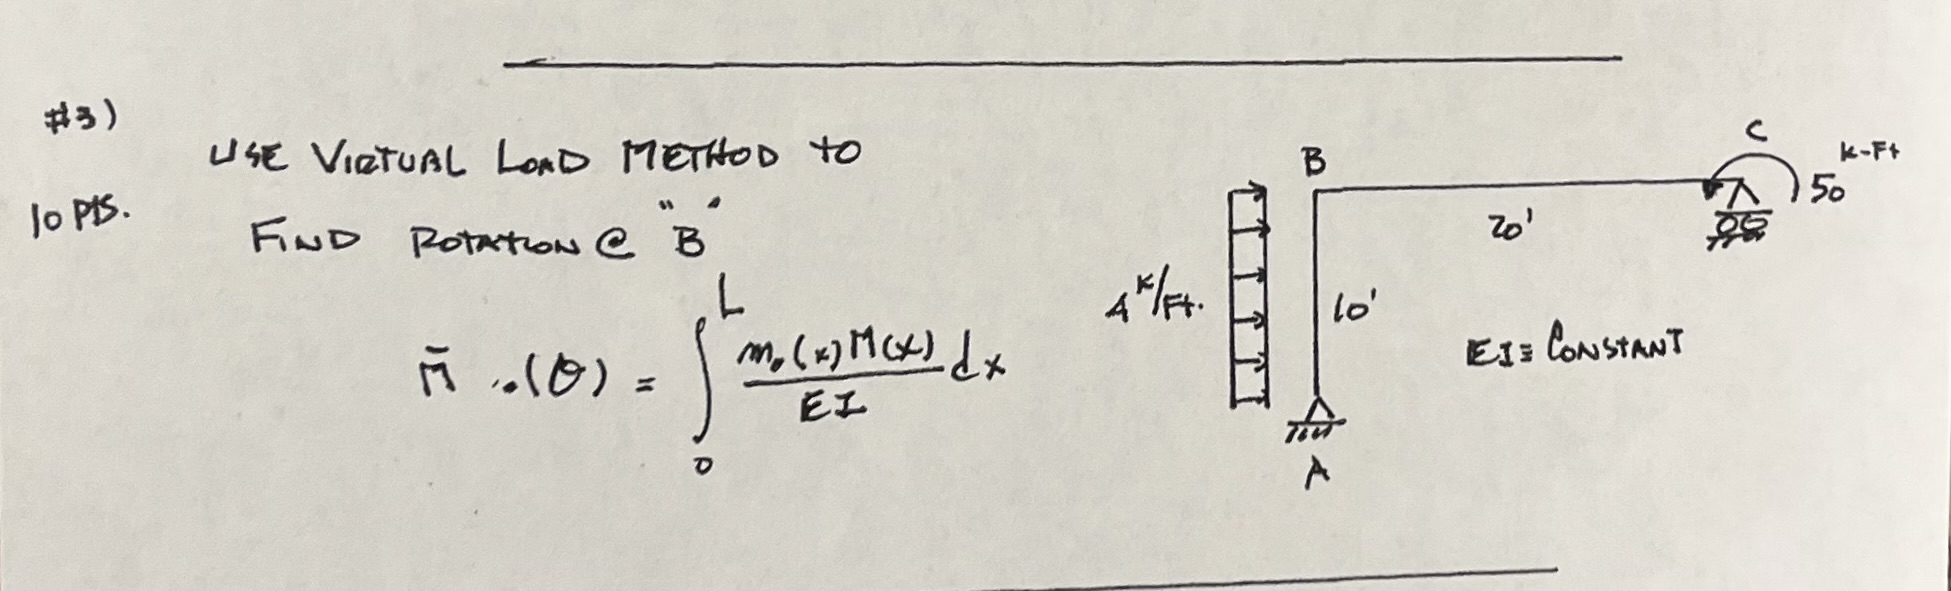 #3)
10 PTS.
USE VIRTUAL LOAD METHOD TO
FIND ROTATION @ "B"
M̄ ..(θ) = ∫₀ᴸ m₀(x) M(x) / EI dx
4 K/Ft.
B
C
50 K-Ft
20'
10'
EI ≡ CONSTANT
A